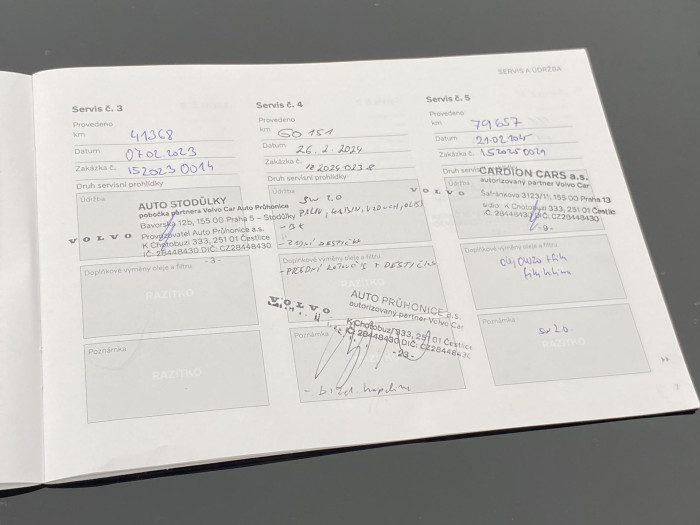 SERVIS A ÚDRŽBA
Servis č. 3
Provedeno
km 41368
Datum 07.02.2023
Zakázka č. 152023 0014
Druh servisní prohlídky
Údržba
AUTO STODŮLKY
pobočka partnera Volvo Car Auto Průhonice
Bavorská 12b, 155 00 Praha 5 – Stodůlky
VOLVO Provozovatel Auto Průhonice a.s.
K Chotobuzi 333, 251 01 Čestlice
IČ: 28448430 DIČ: CZ28448430
- 3 -
Doplňkové výměny oleje a filtru
RAZÍTKO
Poznámka
RAZÍTKO
Servis č. 4
Provedeno
km 60 151
Datum 26. 2. 2024
Zakázka č.
Druh servisní prohlídky
Údržba
SW 20
Doplňkové výměny oleje a filtru
- PŘEDNÍ + DESTIČKY
VOLVO
AUTO PRŮHONICE a.s.
autorizovaný partner Volvo Car
K Chotobuzi 333, 251 01 Čestlice
IČ: 28448430 DIČ: CZ28448430
- 23 -
Servis č. 5
Provedeno
km 79657
Datum 21.02.2025
Zakázka č. 152025 0029
Druh servisní prohlídky
Údržba
CARDION CARS a.s.
autorizovaný partner Volvo Car
VOLVO Šafránkova 3123/11, 155 00 Praha 13
sídlo: K Chotobuzi 333, 251 01 Čestlice
IČ: 28448430 DIČ: CZ28448430
- 9 -
Doplňkové výměny oleje a filtru
Poznámka
SW 20
7